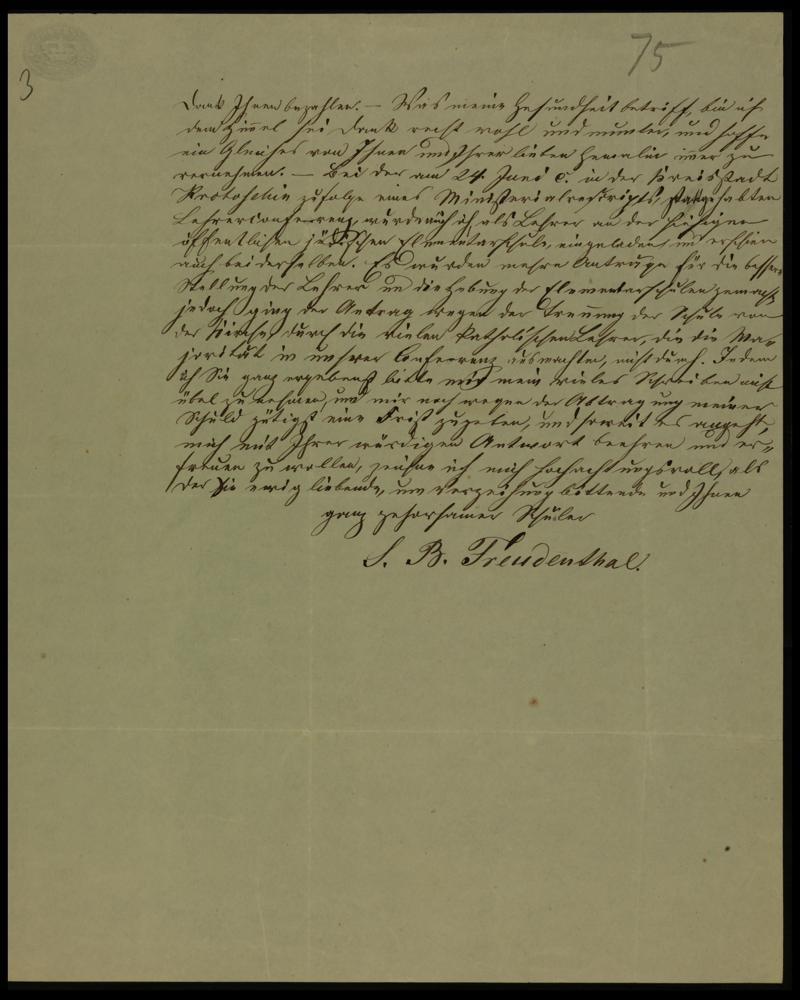 75
3
Dank Ihnen bezahlen. — Was meine Gesundheit betrifft, bin ich
dem Himmel sei Dank recht wohl und munter, und hoffe
ein Gleiches von Ihnen und Ihrer lieben Gemalin immer zu
vernehmen. — Bei der am 24. Juni c. in der Kreisstadt
Krotoschin zufolge eines Ministerialrescripts, stattgehabten
Lehrerconferrenz, wurde auch ich als Lehrer an der hiesigen
öffentlichen jüdischen Elementarschule, eingeladen und erschien
auch bei derselben. Es wurden mehre Anträge für die bessere
Stellung der Lehrer und die Hebung der Elementarschulen gemacht
jedoch ging der Antrag wegen der Trennung der Schule von
der Kirche, durch die vielen katholischen Lehrer, die die Ma-
jorität in unserer Conferrenz ausmachten, nicht durch. Indem
ich Sie ganz ergebenst bitte mir mein vieles Schreiben nicht
übel zu nehmen, und mir noch wegen der Abtragung meiner
Schuld gütigst eine Frist zugeben, und soweit es angeht,
mich mit Ihrer würdigen Antwort beehren und er-
freuen zu wollen, zeichne ich mich hochachtungsvoll, als
der Sie ewig liebende, um Verzeihung bittende und Ihnen
ganz gehorsamer Schüler
S. B. Freudenthal.